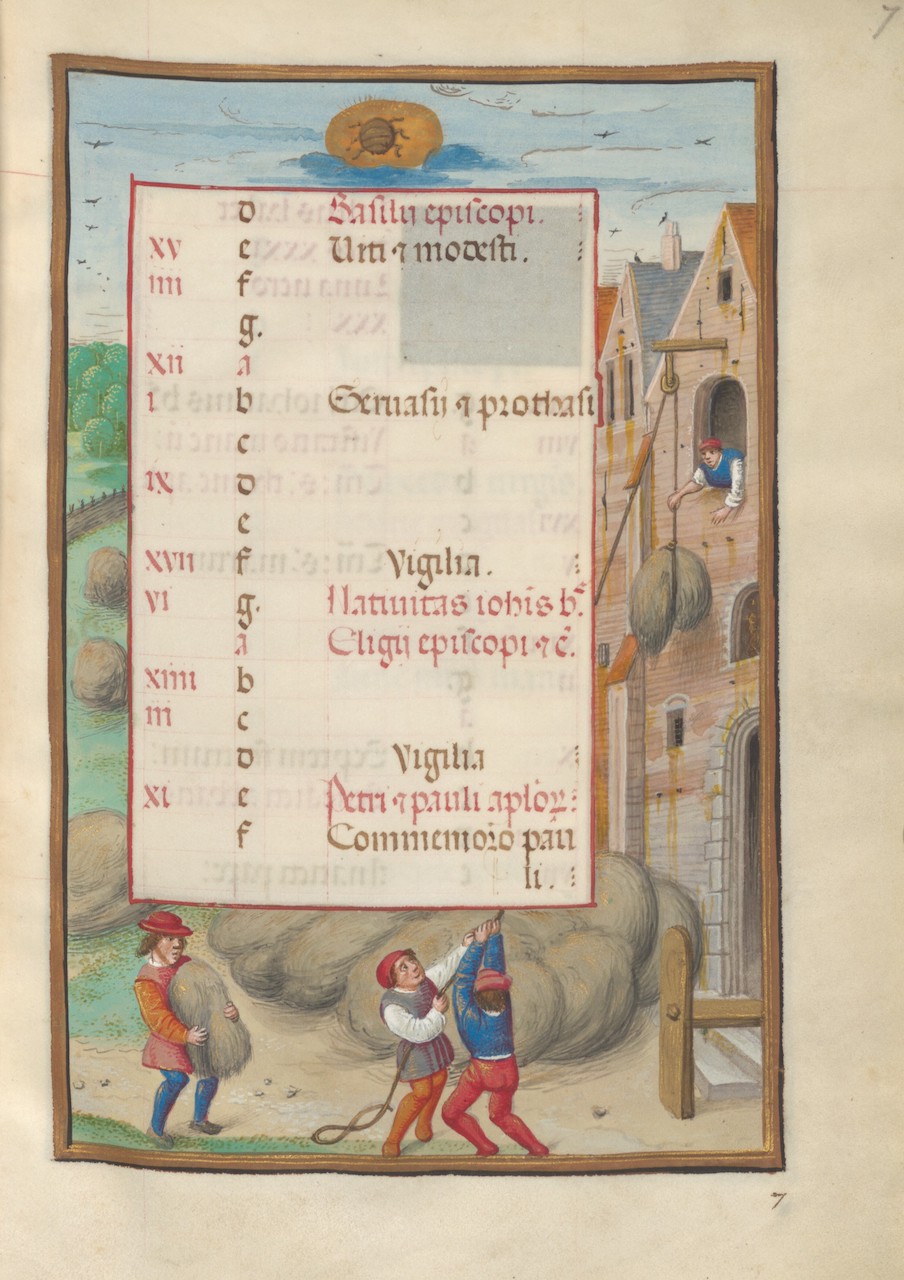 7
d Basilii episcopi.
xv e Viti ⁊ modesti.
iiii f
g.
xii a
i b Geruasij ⁊ prothasi
c
ix d
e
xvii f Vigilia.
vi g. Natiuitas iohis b
a Eligij episcopi ⁊ c̄.
xiiii b
iii c
d Vigilia
xi e Petri ⁊ pauli aploꝝ
f Commemoro pau
li.
7